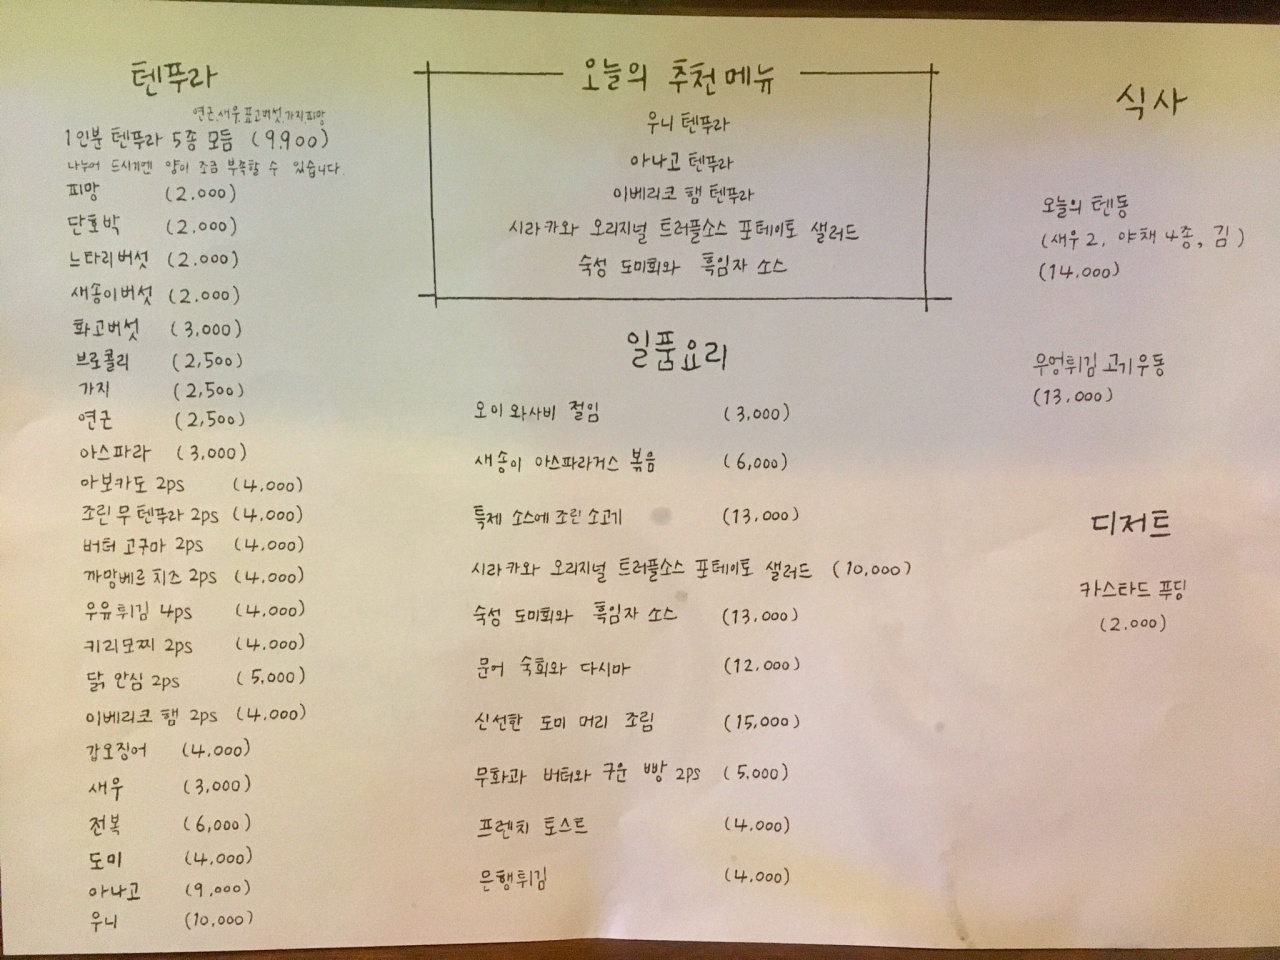 텐푸라
연근,새우,표고버섯,가지,피망
1인분 텐푸라 5종 모듬 (9,900)
나누어 드시기엔 양이 조금 부족할 수 있습니다.
피망 (2.000)
단호박 (2.000)
느타리버섯 (2.000)
새송이버섯 (2.000)
화고버섯 (3,000)
브로콜리 (2,500)
가지 (2,500)
연근 (2,500)
아스파라 (3,000)
아보카도 2ps (4,000)
조린 무 텐푸라 2ps (4,000)
버터 고구마 2ps (4,000)
까망베르 치즈 2ps (4,000)
우유튀김 4ps (4,000)
키리모찌 2ps (4,000)
닭 안심 2ps (5,000)
이베리코 햄 2ps (4,000)
갑오징어 (4,000)
새우 (3,000)
전복 (6,000)
도미 (4,000)
아나고 (9,000)
우니 (10,000)
오늘의 추천메뉴
우니 텐푸라
아나고 텐푸라
이베리코 햄 텐푸라
시라카와 오리지널 트러플소스 포테이토 샐러드
숙성 도미회와 흑임자 소스
일품요리
오이 와사비 절임 (3,000)
새송이 아스파라거스 볶음 (6,000)
특제 소스에 조린 소고기 (13,000)
시라카와 오리지널 트러플소스 포테이토 샐러드 (10,000)
숙성 도미회와 흑임자 소스 (13,000)
문어 숙회와 다시마 (12,000)
신선한 도미 머리 조림 (15,000)
무화과 버터와 구운 빵 2ps (5,000)
프렌치 토스트 (4,000)
은행튀김 (4,000)
식사
오늘의 텐동
(새우2, 야채 4종, 김)
(14,000)
우엉튀김 고기우동
(13,000)
디저트
카스타드 푸딩
(2,000)